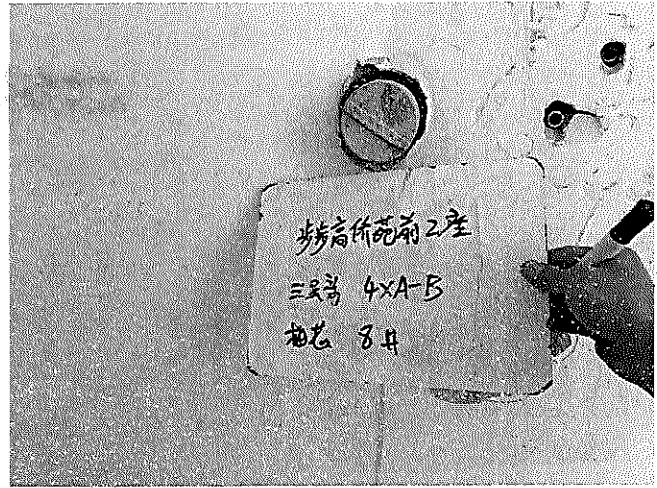 步步高侨苑前2座
三层离 4×A-B
抽芯 8#